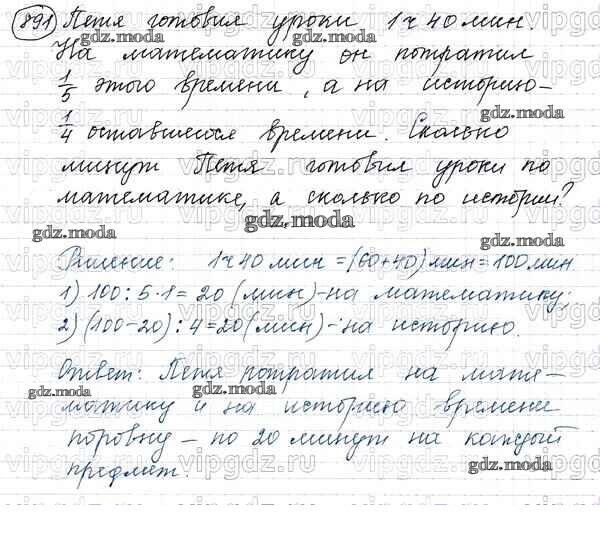 891 Петя готовил уроки 1 ч 40 мин.
На математику он потратил
1/5 этого времени, а на историю –
1/4 оставшегося времени. Сколько
минут Петя готовил уроки по
математике, а сколько по истории?
Решение: 1 ч 40 мин = (60+40) мин = 100 мин
1) 100 : 5 · 1 = 20 (мин) – на математику;
2) (100 – 20) : 4 = 20 (мин) – на историю.
Ответ: Петя потратил на мате-
матику и на историю времени
поровну – по 20 минут на каждый
предмет.
gdz.moda
vipgdz.ru